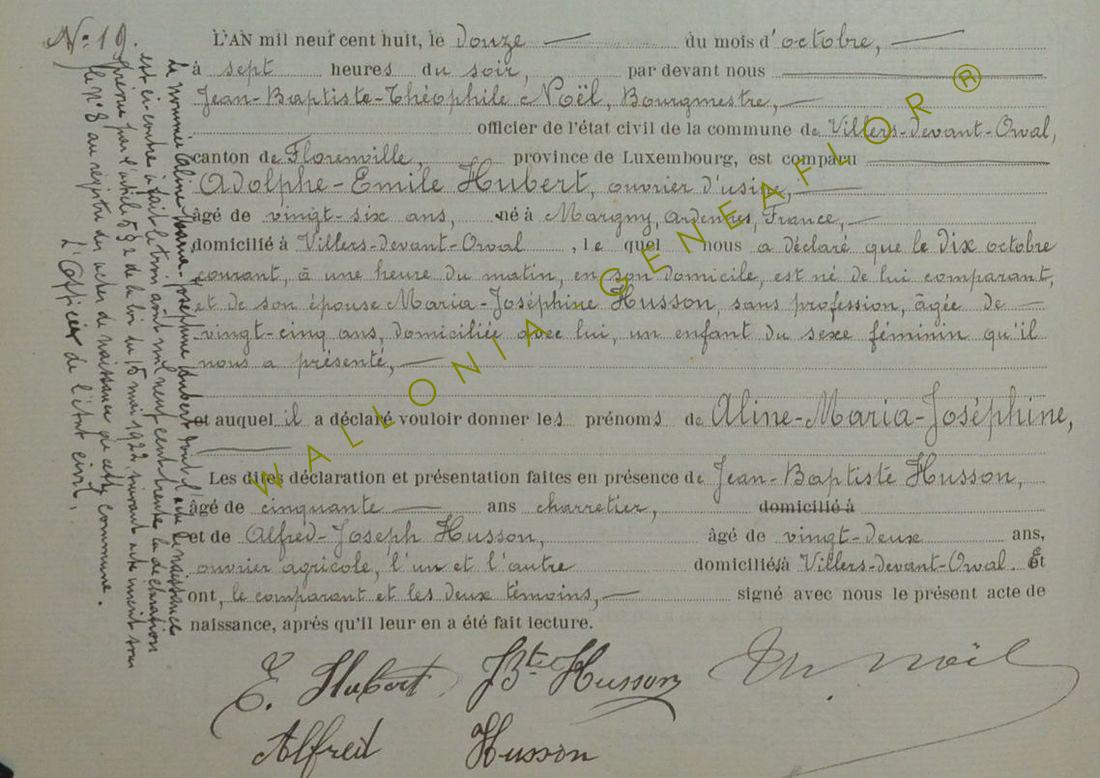 N° 19.
L'AN mil neuf cent huit, le douze du mois d'octobre,
à sept heures du soir, par devant nous
Jean-Baptiste-Théophile Noël, Bourgmestre,
officier de l'état civil de la commune de Villers-devant-Orval,
canton de Florenville, province de Luxembourg, est comparu
Adolphe-Emile Hubert, ouvrier d'usine,
âgé de vingt-six ans, né à Margny, Ardennes, France,
domicilié à Villers-devant-Orval, le quel nous a déclaré que le dix octobre
courant, à une heure du matin, en son domicile, est né de lui comparant,
et de son épouse Maria-Joséphine Husson, sans profession, âgée de
vingt-cinq ans, domiciliée avec lui, un enfant du sexe féminin qu'il
nous a présenté,
et auquel il a déclaré vouloir donner les prénoms de Aline-Maria-Joséphine,
Les dites déclaration et présentation faites en présence de Jean-Baptiste Husson,
âgé de cinquante ans charretier, domicilié à
et de Alfred-Joseph Husson, âgé de vingt-deux ans,
ouvrier agricole, l'un et l'autre domiciliés à Villers-devant-Orval. Et
ont, le comparant et les deux témoins, signé avec nous le présent acte de
naissance, après qu'il leur en a été fait lecture.
E. Hubert Jⁿ Bte Husson Th. Noël
Alfred Husson
La nommée Aline-Maria-Joséphine Hubert dont l'acte de naissance
est ci-contre a fait le trois août mil neuf cent trente la déclaration
prévue par l'article 5 § 2 de la loi du 15 mai 1922 suivant acte inscrit sous
le n° 8 au registre des actes de naissance de cette commune.
L'Officier de l'état civil,
WALLONIA GENEAFLOR ®